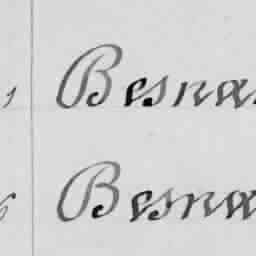 Besna
Besna